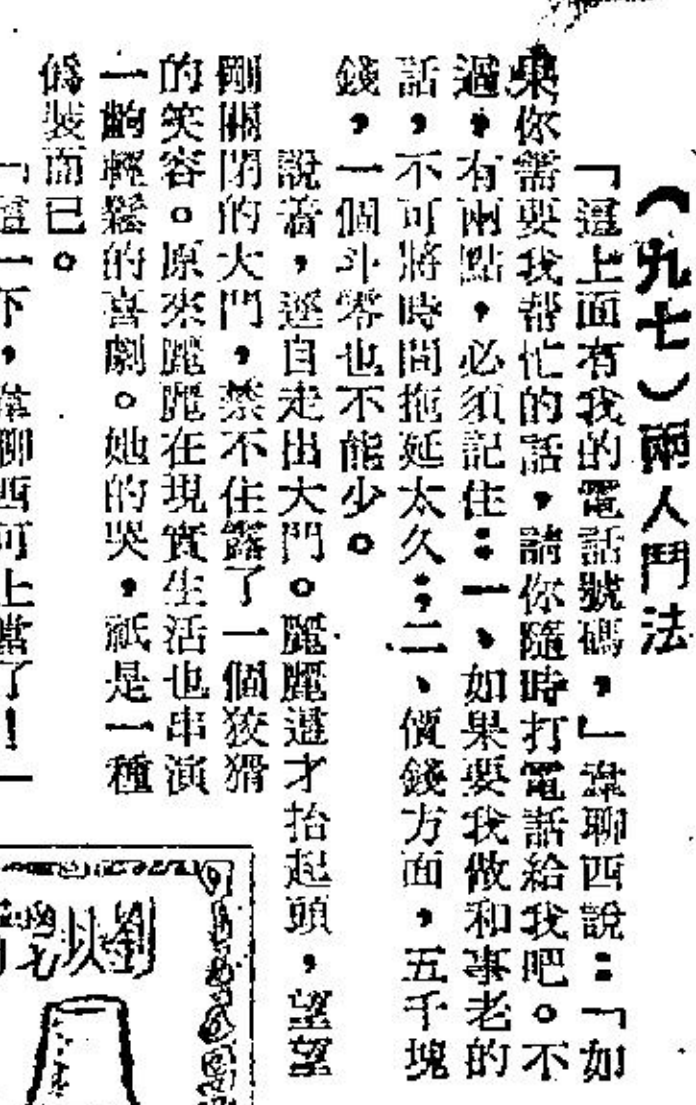 （九七）兩人鬥法
「這上面有我的電話號碼，」韋聊西說：「如
果你需要我幫忙的話，請你隨時打電話給我吧。不
過，有兩點，必須記住：一、如果要我做和事老的
話，不可將時間拖延太久；二、價錢方面，五千塊
錢，一個斗零也不能少。
說着，逕自走出大門。麗麗這才抬起頭，望望
剛關閉的大門，禁不住露了一個狡猾
的笑容。原來麗麗在現實生活也串演
一齣輕鬆的喜劇。她的哭，祇是一種
偽裝而已。
「這一下，韋聊西可上當了！
劉以鬯